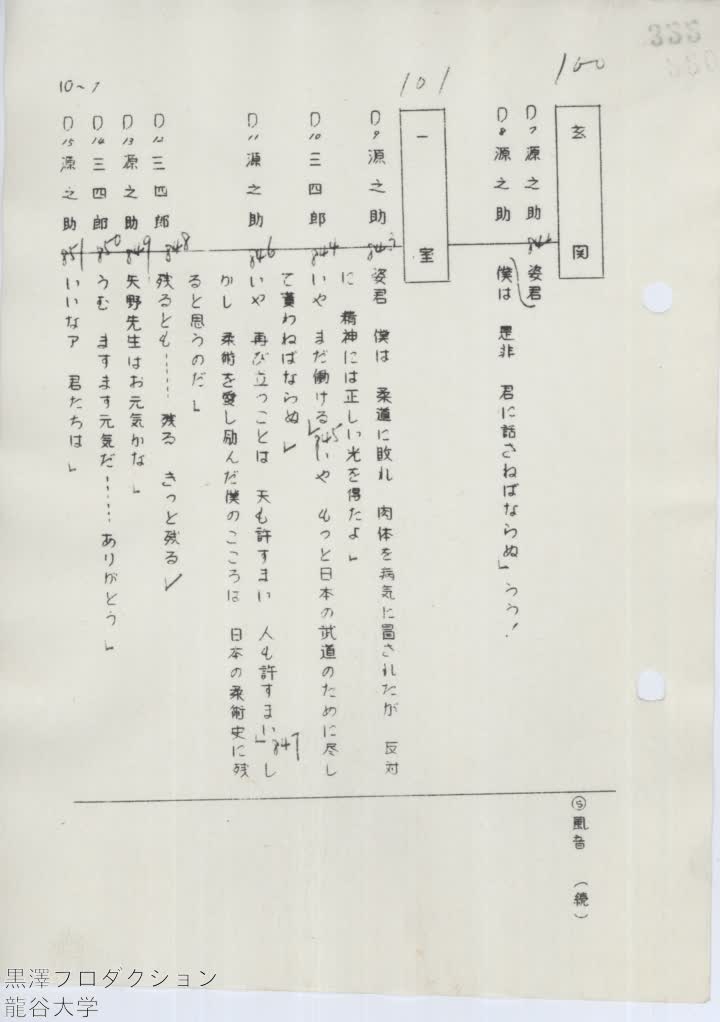 335
100
玄関
⑤風音 (続)
D7 源之助 姿君
D8 源之助 僕は 是非 君に話さねばならぬ」うう!
101
一室
D9 源之助 姿君 僕は 柔道に敗れ 肉体を病気に冒されたが 反対
に 精神には正しい光を得たよ」
D10 三四郎 844 いや まだ働ける」845 いや もっと日本の武道のために尽し
て貰わねばならぬ」
D11 源之助 846 いや 再び立つことは 天も許すまい 人も許すまい」847 し
かし 柔術を愛し励んだ僕のこころは 日本の柔術史に残
ると思うのだ」
D12 三四郎 848 残るとも…… 残る きっと残る」
D13 源之助 849 矢野先生はお元気かな」
D14 三四郎 850 うむ ますます元気だ…… ありがとう」
D15 源之助 851 いいなア 君たちは」
10~1
黒澤プロダクション
龍谷大学